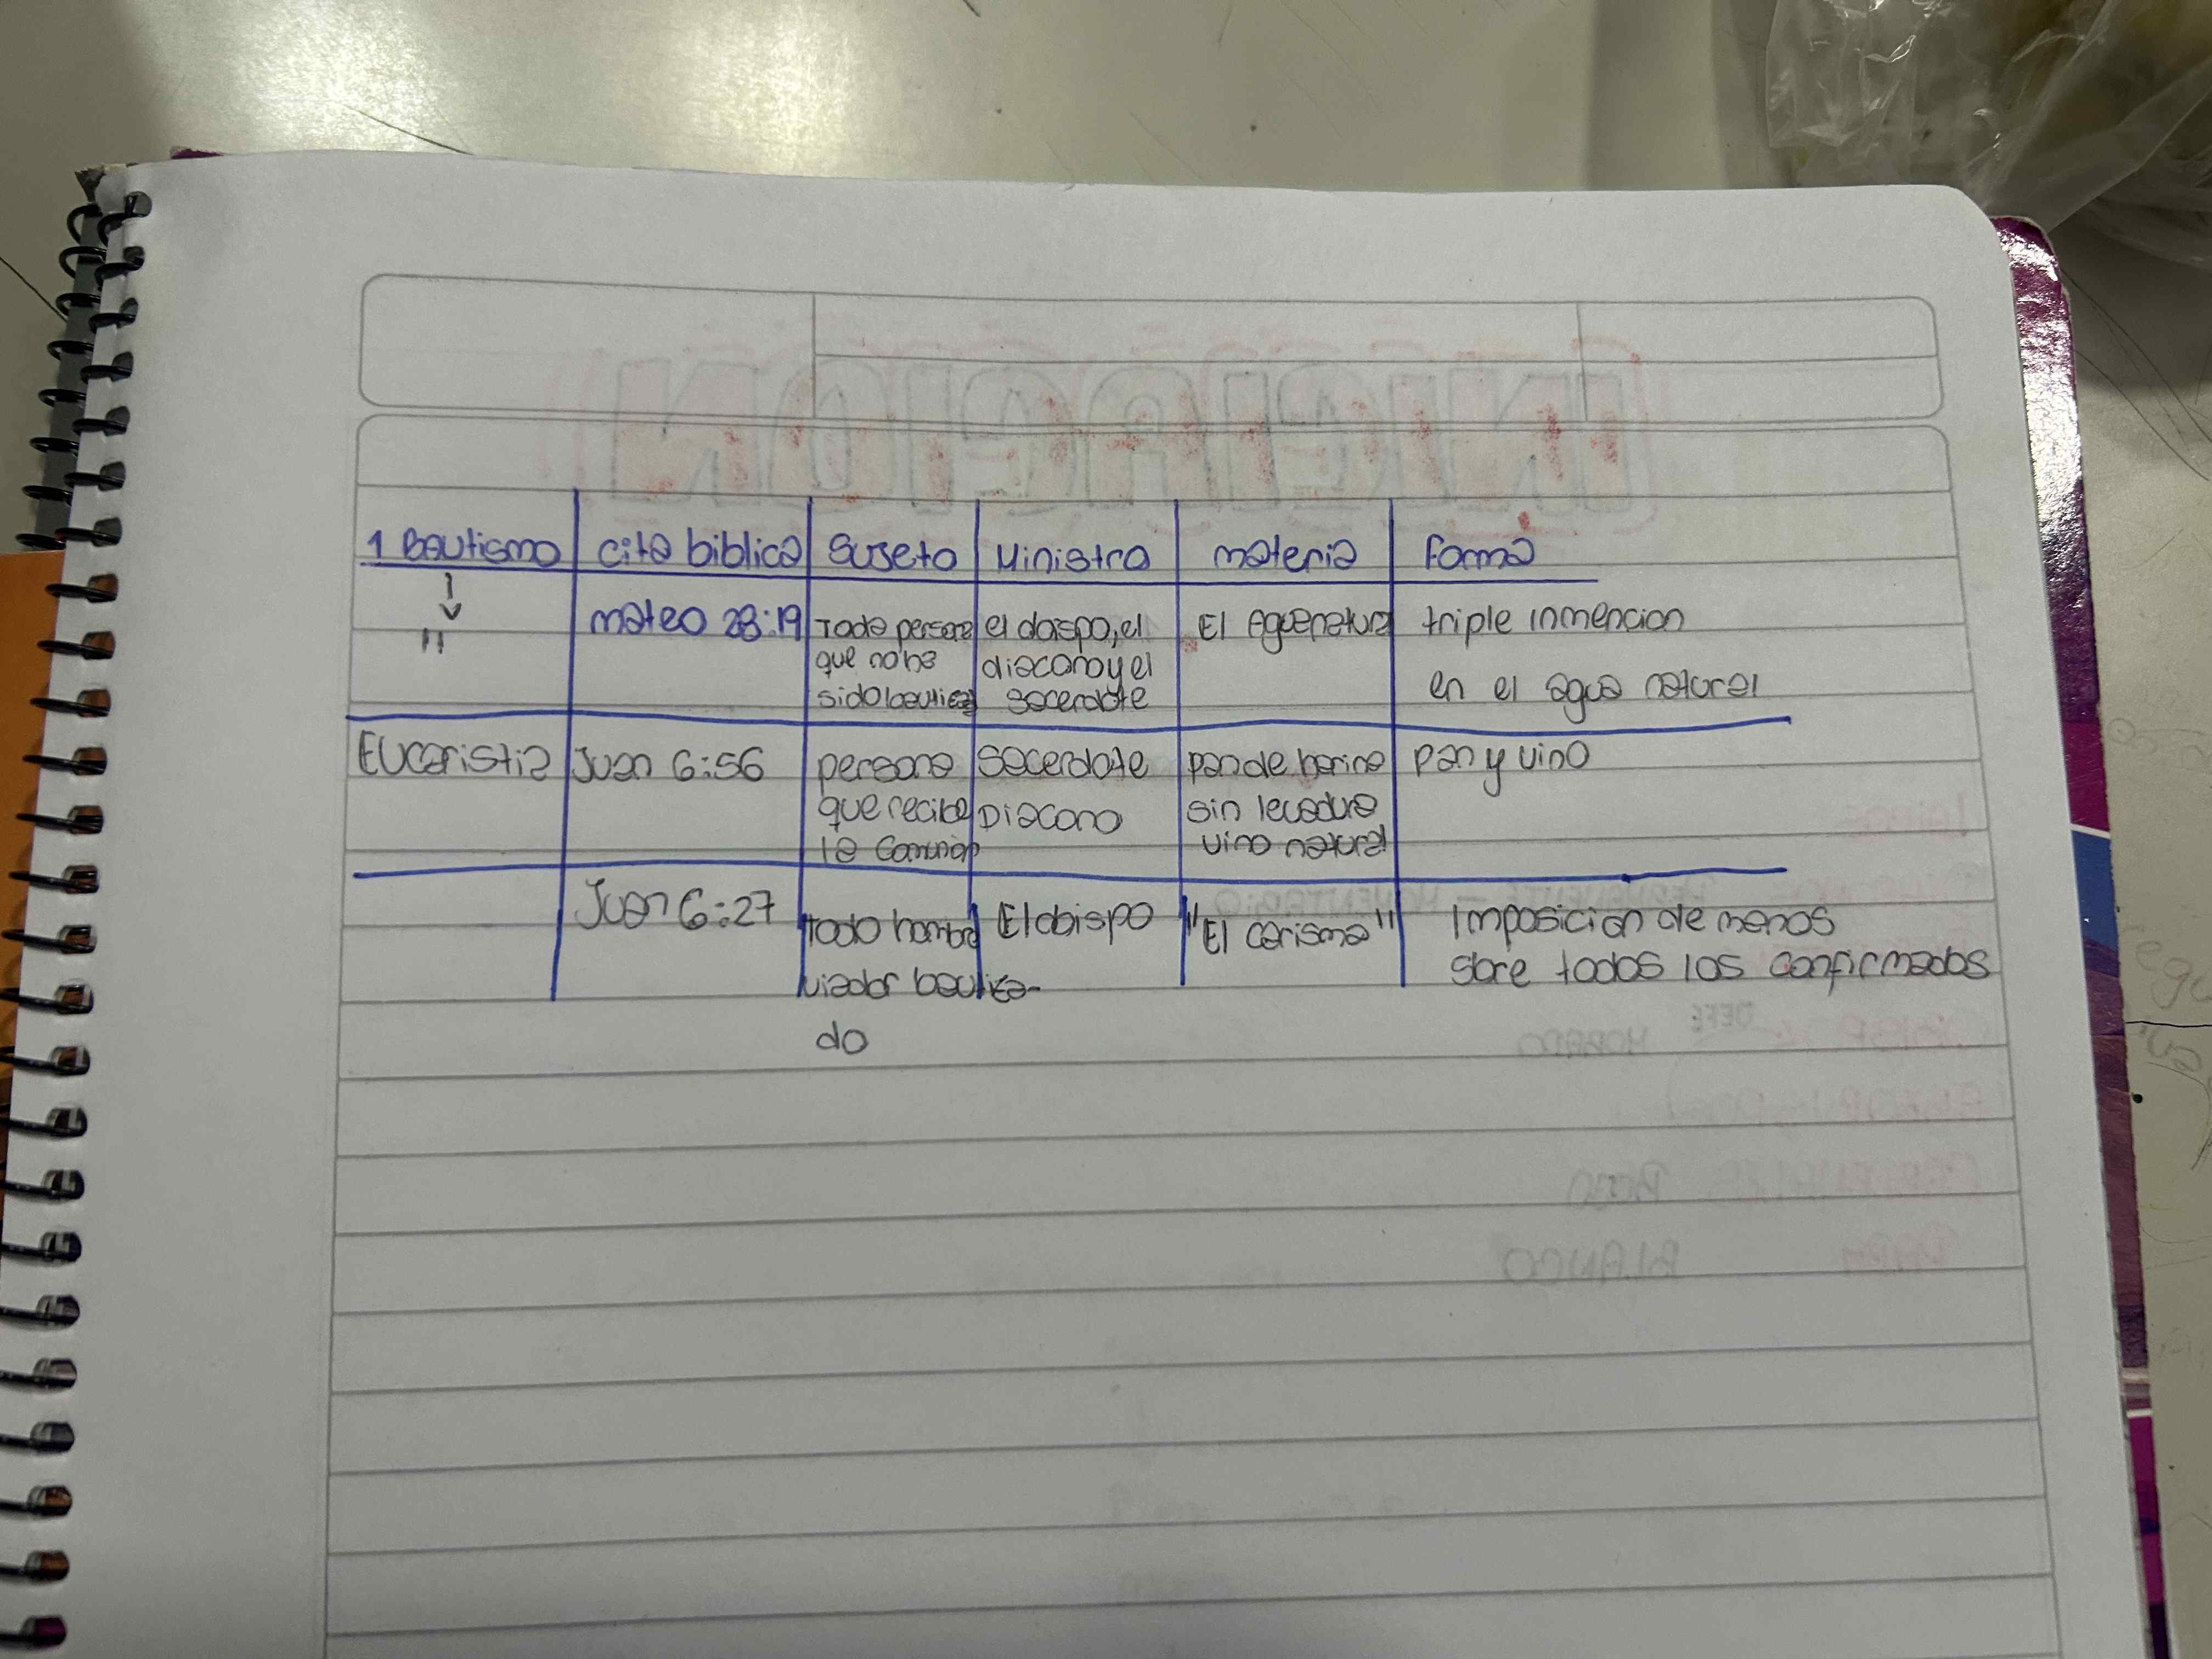 1 Bautismo cita biblica Sujeto Ministro materia forma
"
mateo 28:19
Toda persona
que no ha
sido bautiza
el doispo, el
diacono y el
sacerdote
El Agua natural
triple inmencion
en el agua natural
Eucaristia
Juan 6:56
persona
que recibe
la Comunion
Sacerdote
Diacono
pan de harina
sin levadura
vino natural
pan y vino
Juan 6:27
todo hombre
viador bautiza-
do
El obispo
"El carisma"
Imposicion de manos
sbre todos los confirmados
INICIACION
BLANCO
ROJO
MORADO